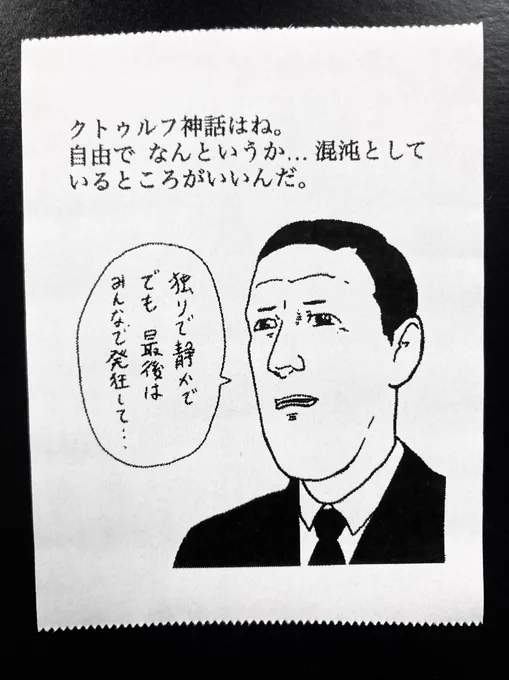 クトゥルフ神話はね。
自由で なんというか… 混沌として
いるところがいいんだ。
独りで静かで
でも 最後は
みんなで発狂して…